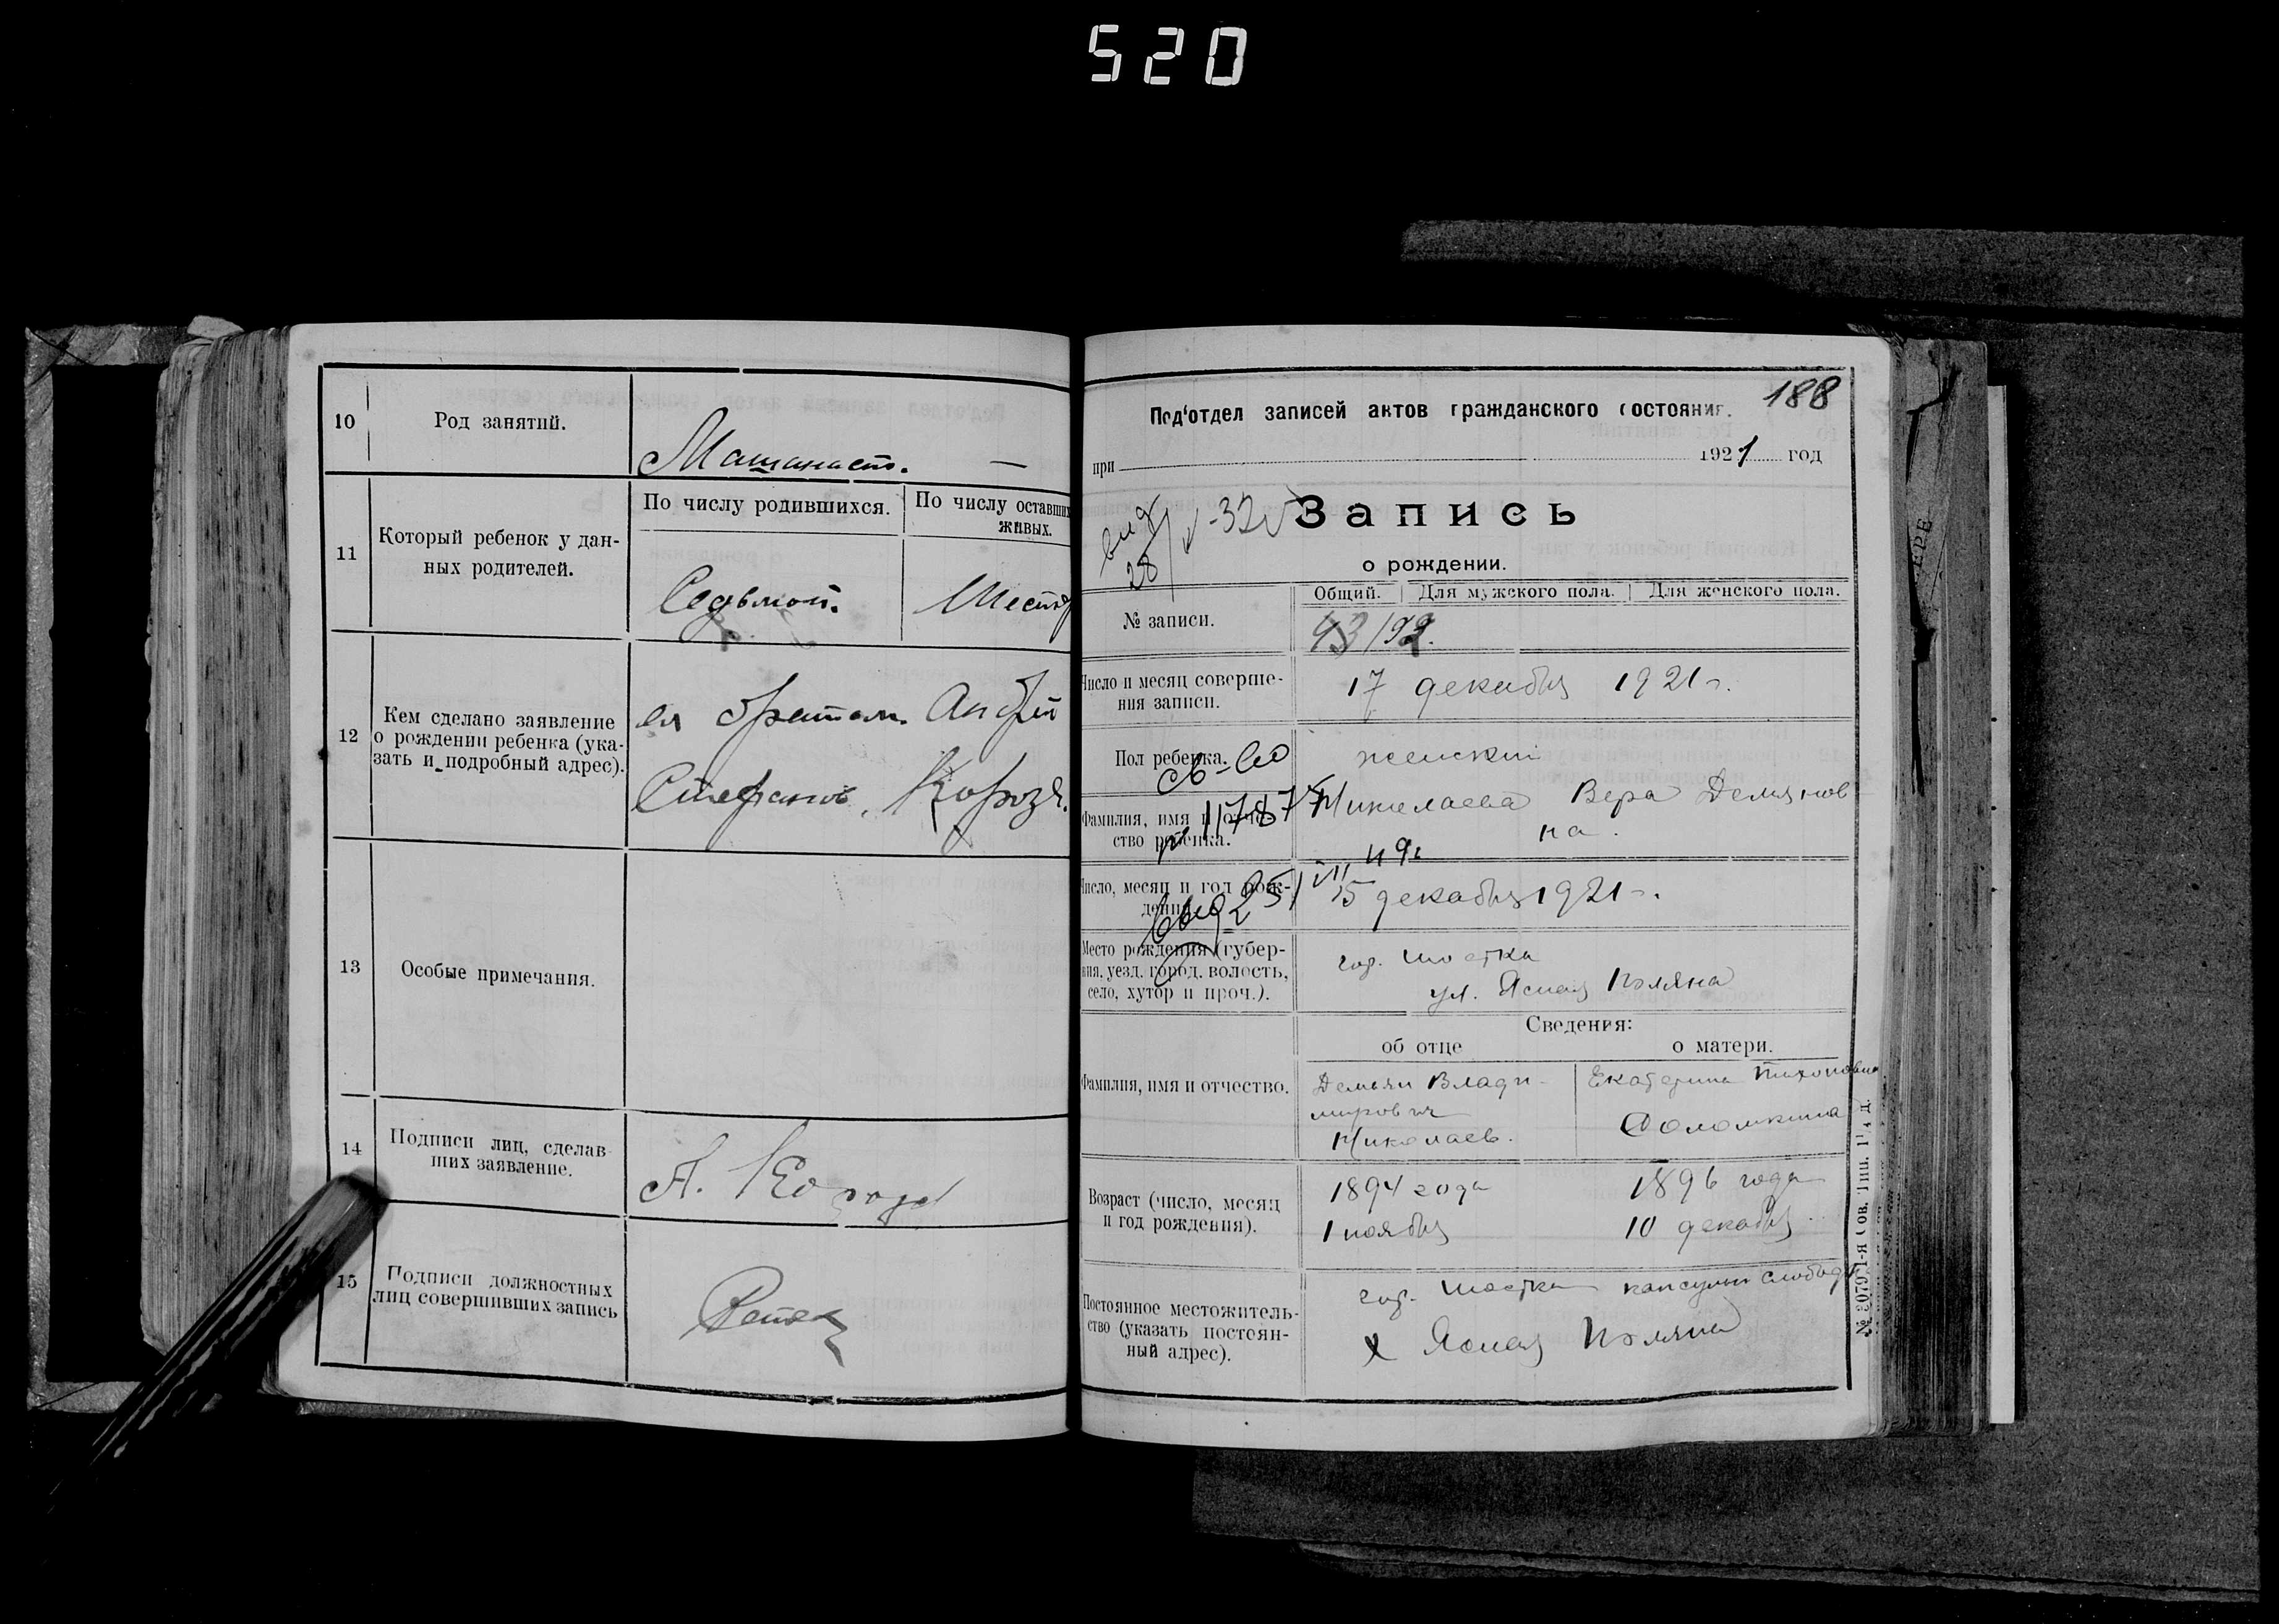 520
10
Род занятий.
Машинист. —
11
Который ребенок у дан-
ных родителей.
По числу родившихся.
По числу оставших
живых.
Седьмой.
Шестой
12
Кем сделано заявление
о рождении ребенка (ука-
зать и подробный адрес).
ея братом. Андрей
Стефанов. Короза.
13
Особые примечания.
14
Подписи лиц, сделав-
ших заявление.
А. Короза
15
Подписи должностных
лиц совершивших запись
188
Под'отдел записей актов гражданского состояния.
при 1921 год
выд
28/V-32
Запись
о рождении.
Общий. Для мужского пола. Для женского пола.
№ записи.
43/92.
Число и месяц соверше-
ния записи.
17 декабря 1921 г.
Пол ребенка.
женский
св-во
Фамилия, имя и отче-
ство ребенка.
Николаева Вера Демьянов
на.
Число, месяц и год рож-
дения
15 декабря 1921 г.
выд 25/VII 49г
Место рождения (губер-
ния, уезд, город, волость,
село, хутор и проч.).
гор. Шостка
ул. Ясная Поляна
Сведения:
об отце
о матери.
Фамилия, имя и отчество.
Демьян Влади-
мирович
Николаев.
Екатерина Тихоновна
Соломкина
Возраст (число, месяц
и год рождения).
1894 года
1 ноября
1896 года
10 декабря.
Постоянное местожитель-
ство (указать постоян-
ный адрес).
гор. Шостка капсульн слобода
х Ясная Поляна
№ 3079 1-я Сов. Тип.